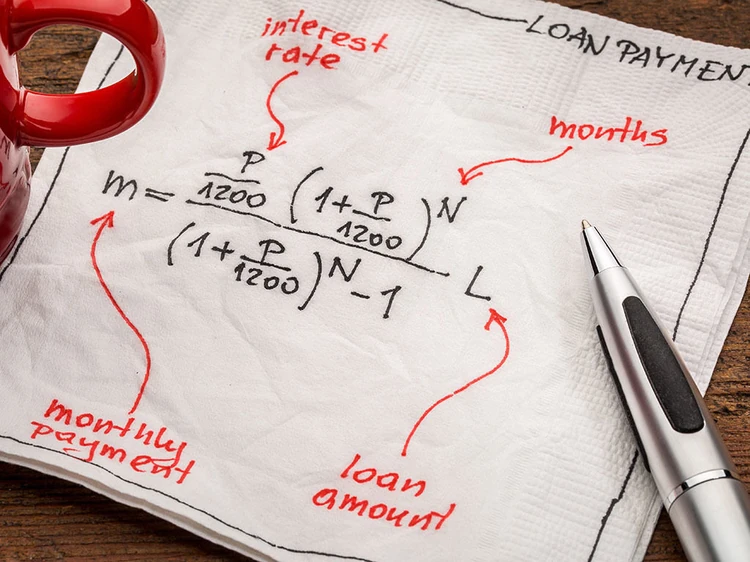 LOAN PAYMENT
interest
rate
months
m = P/1200 (1 + P/1200)^N
(1 + P/1200)^N - 1
L
monthly
payment
loan
amount